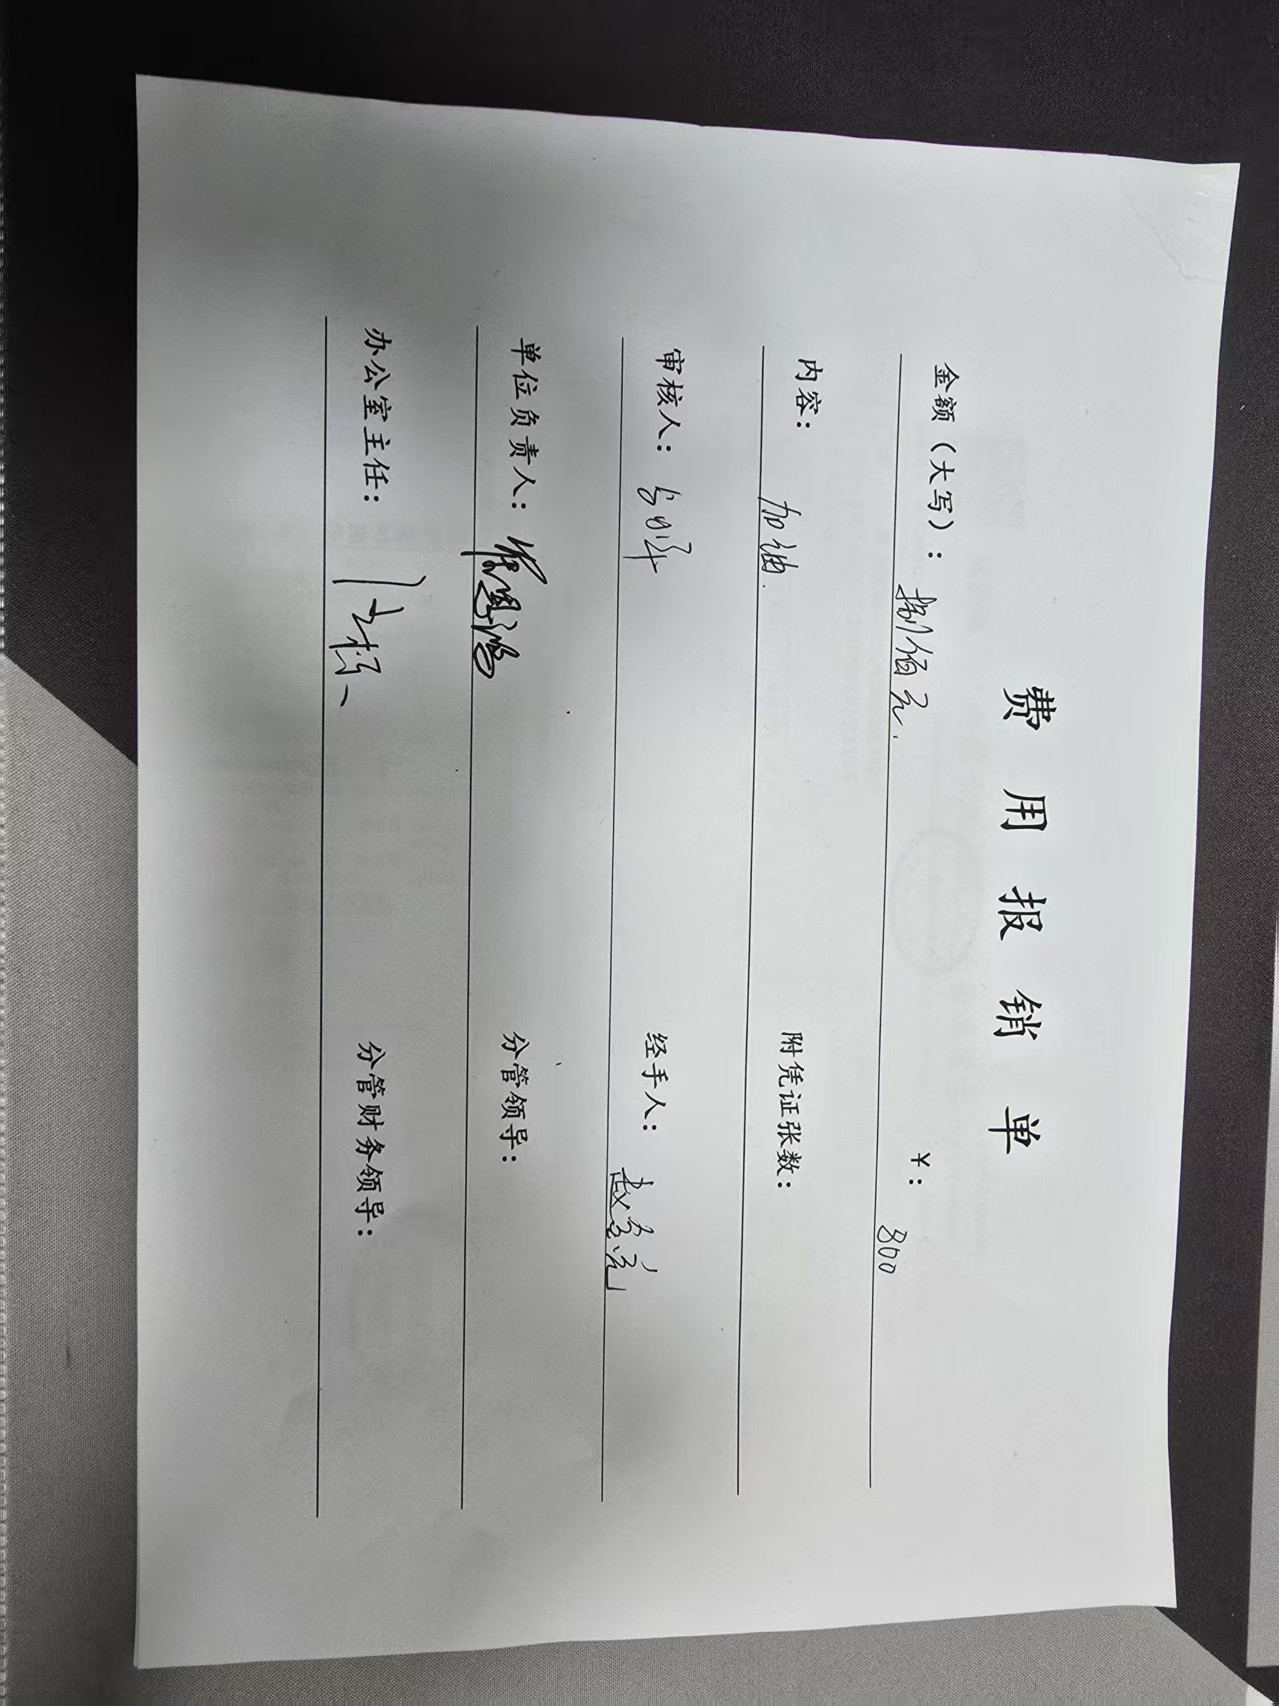 费用报销单
金额(大写): 捌佰元. ¥: 800
内容: 加油. 附凭证张数:
审核人: 经手人: 赵
单位负责人: 分管领导:
办公室主任: 分管财务领导: